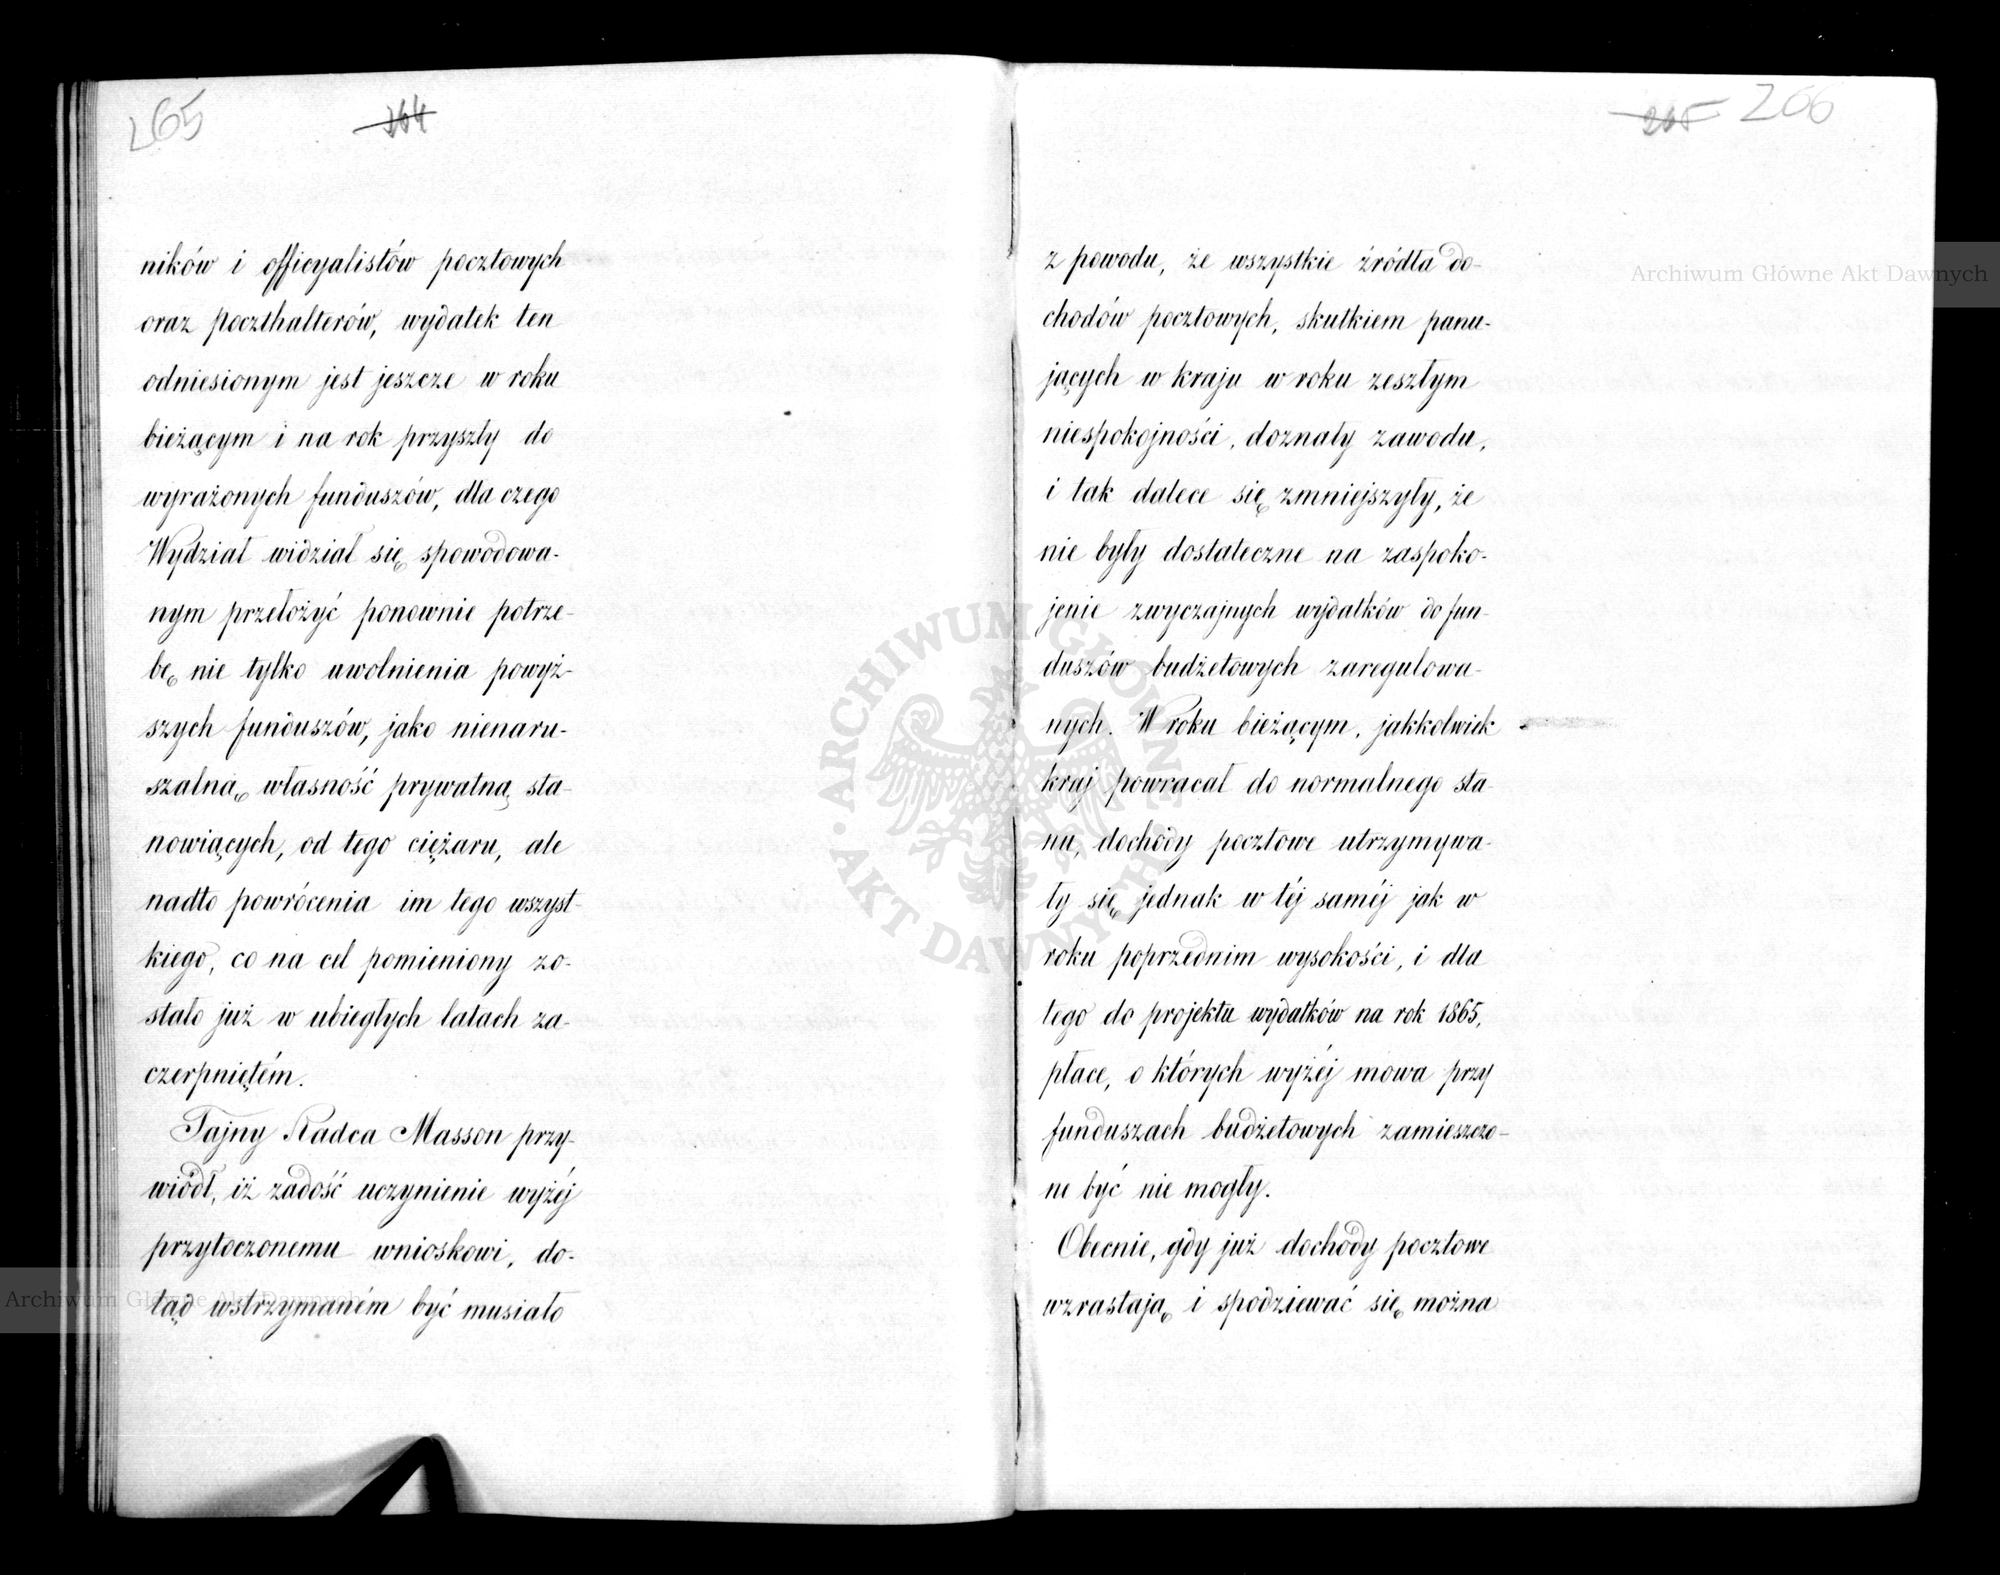 265
264
ników i officyalistów pocztowych
oraz poczthalterów, wydatek ten
odniesionym jest jeszcze w roku
bieżącym i na rok przyszły do
wyrażonych funduszów, dla czego
Wydział widział się spowodowa-
nym przełożyć ponownie potrze-
bę nie tylko uwolnienia powyż-
szych funduszów, jako nienaru-
szalną własność prywatną sta-
nowiących, od tego ciężaru, ale
nadto powrócenia im tego wszyst-
kiego, co na cel pomieniony zo-
stało już w ubiegłych latach za-
czerpniętém.
Tajny Radca Masson przy-
wiódł, iż zadość uczynienie wyżéj
przytoczonemu wnioskowi, do-
tąd wstrzymaném być musiało
265 266
z powodu, że wszystkie źródła do-
chodów pocztowych, skutkiem panu-
jących w kraju w roku zeszłym
niespokojności, doznały zawodu,
i tak dalece się zmniejszyły, że
nie były dostateczne na zaspoko-
jenie zwyczajnych wydatków do fun-
duszów budżetowych zaregulowa-
nych. W roku bieżącym, jakkolwiek
kraj powracał do normalnego sta-
nu, dochody pocztowe utrzymywa-
ły się jednak w téj saméj jak w
roku poprzednim wysokości, i dla
tego do projektu wydatków na rok 1865,
płace, o których wyżéj mowa przy
funduszach budżetowych zamieszczo-
ne być nie mogły.
Obecnie, gdy już dochody pocztowe
wzrastają i spodziewać się można
Archiwum Główne Akt Dawnych
Archiwum Główne Akt Dawnych
ARCHIWUM GŁÓWNE AKT DAWNYCH